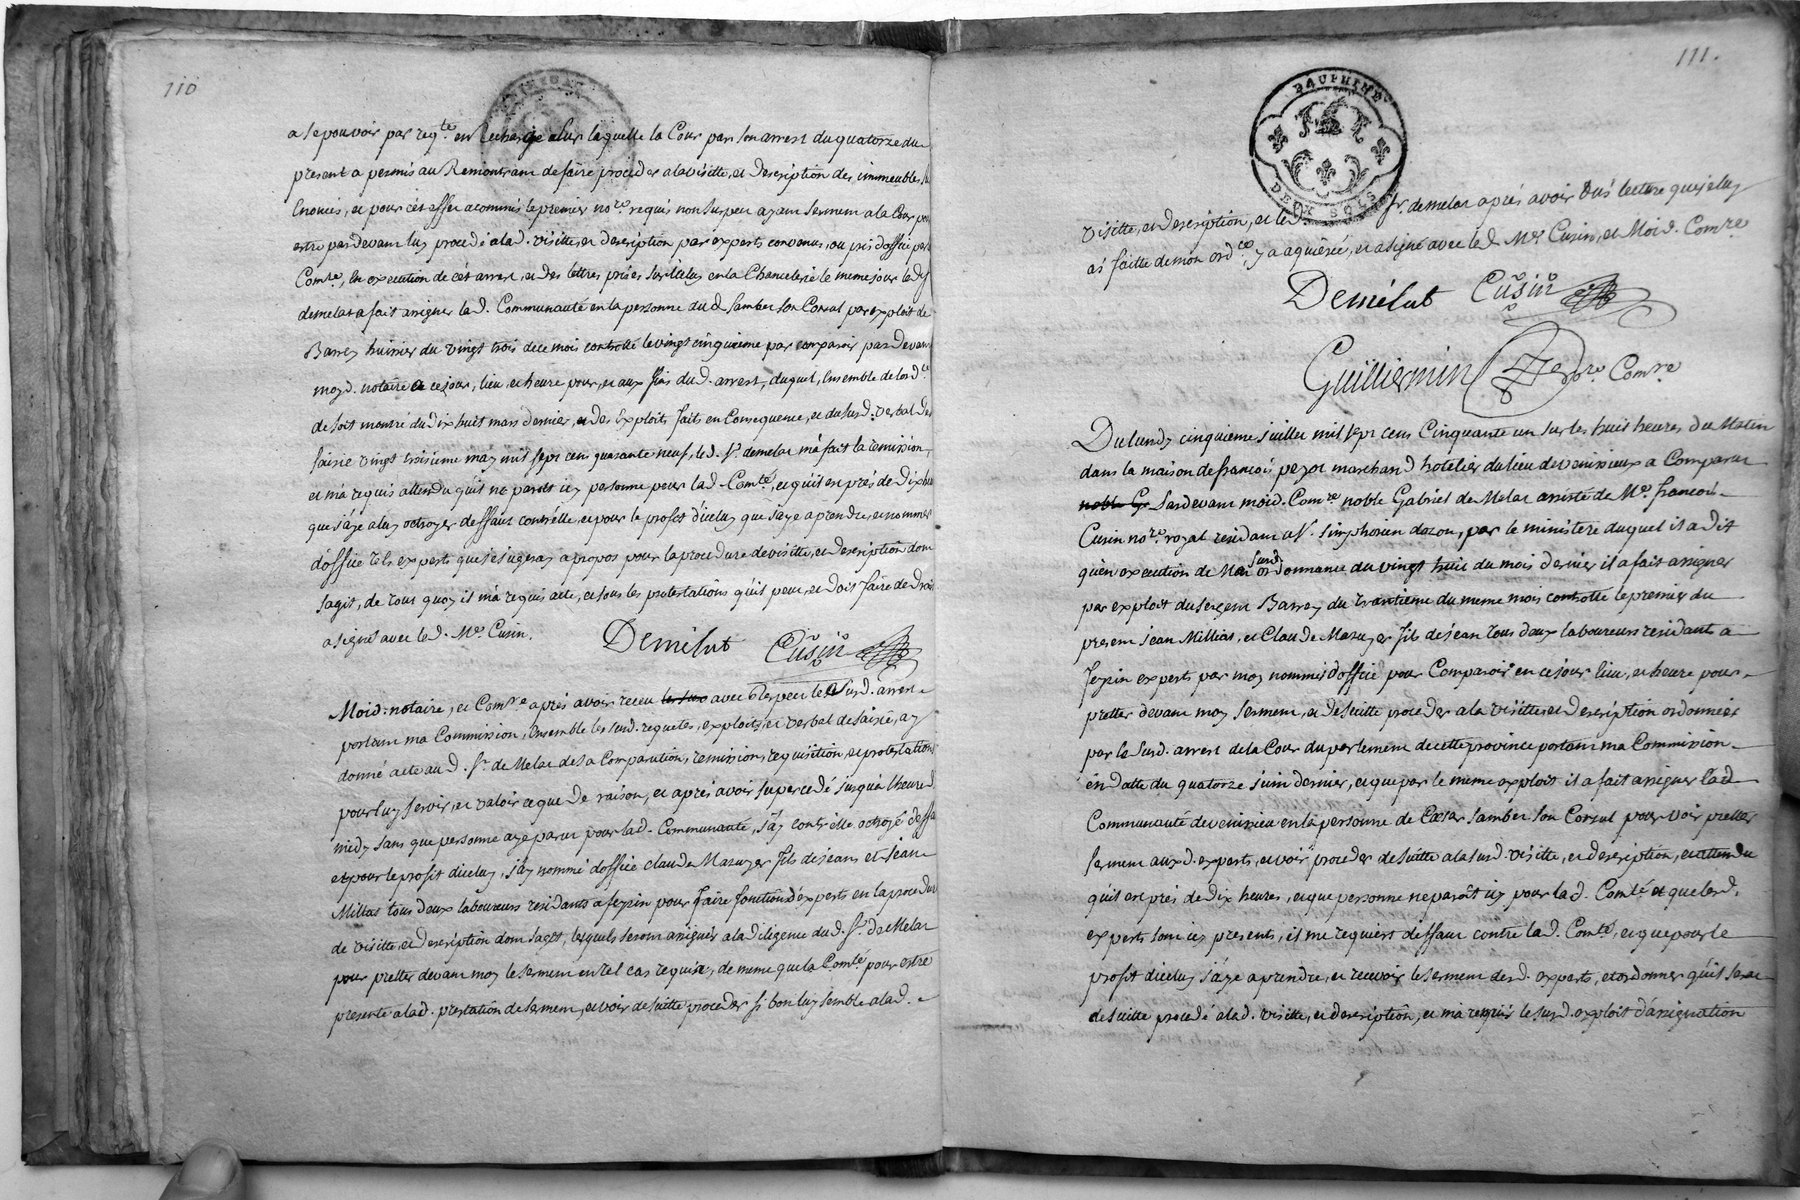 110
a se pouvoir par reqte en Recharge sur laquelle la Cour par son arrest du quatorze du
present a permis au Remontrant de faire proceder a la visitte, et Description des immeubles
Enoncés, et pour cét effet a commis le premier nore requis non suspect ayant serment a la Cour pour
estre par devant luy procedé a lad. visitte, et description par experts convenus, ou pris d'office par le
Comre, En execution de cét arrest, et des lettres prises sur icelluy en la Chancelerie le meme jour led sr
demelat a fait assigner lad. Communauté en la personne dud sambet son Consul par exploit de
Barrey huissier du vingt trois de ce mois controllé le vingt cinquieme par comparoir par devant
moyd. notaire a ce jour, lieu, et heure pour, et aux fins dud. arrest, duquel, Ensemble de lordce
de soit montré du dix huit mars dernier, et des Exploits faits en Consequence, et du susd. verbal de
saisie vingt troisieme may mil sept cens quarante neuf, led. sr demelat m'a fait la remission,
et m'a requis attendu qu'il ne paroit icy personne pour lad Comté, et qu'il est prés de dix heures
que j'aye a luy octroyer deffaut contr'elle, et pour le profit d'icelluy que j'aye a prendre, et nommer
d'office tels experts que je jugeray a propos pour la procedure de visitte, et description dont
s'agit, de tout quoy il m'a requis acte, et sous les protestations qu'il peut, et doit faire de droit
a signé avec led. Me Cusin.
Demélat Cusin
Moid: notaire, et Comre aprés avoir receu avec Respect le susd. arrest
portant ma Commission, Ensemble les susd. requetes, exploits, et verbal de saisie, ay
donné acte aud. sr de Melat de sa Comparution, remission, requisition, et protestations
pour luy servir, et valoir ce que de raison, et aprés avoir supercedé jusqu'a lheure de
midy sans que personne aye parut pour lad. Communauté, j'ay contr'elle octroyé deffaut
et pour le profit d'icelluy, j'ay nommé d'office claude Mazuyer fils de jean et jean
Millias tous deux laboureurs residants a feyzin pour faire fonctions d'éxperts en la procedure
de visitte, et description dont s'agit, lesquels seront assignés a la diligence dud. sr de Melat
pour pretter devant moy le serment en tel cas requis, de meme que la Comté pour estre
presente a lad. prestation de serment, et voir de suitte proceder si bon luy semble a lad.
111.
DAUPHINÉ
DEUX SOLS
visitte, et description, et led sr. demelat aprés avoir lecture que je luy
ai faitte de mon ordce, y a aquiécé, et a signé avec led Me Cusin, et Moid. Comre
Demélat Cusin
Guilliermin nore Comre
Du lundy cinquieme juillet mil sept cens Cinquante un sur les huit heures du Matin
dans la maison de françois peyot marchand hotelier du lieu de venissieux a Comparu
noble G Pardevant moid. Comre noble Gabriel de Melat assisté de Me françois
Cusin nore royal residant a St. simphorien dozon, par le ministere duquel il a dit
qu'en execution de susd ordonnance du vingt huit du mois dernier il a fait assigner
par exploit du sergent Barrey du trantieme du meme mois controllé le premier du
present jean Millias, et Claude Mazuyer fils de jean tous deux laboureurs residants a
feyzin experts par moy nommés d'office pour Comparoir en ce jour lieu, et heure pour
pretter devant moy serment, et de suitte proceder a la visitte, et description ordonnées
par le susd. arrest de la Cour du parlement de cette province portant ma Commission
én datte du quatorze juin dernier, et que par le meme exploit il a fait assigner lad
Communauté de venissieu en la personne de Cezar sambet son Consul pour voir pretter
serment auxd. experts, et voir proceder de suitte a la susd. visitte, et description, et attendu
qu'il est prés de dix heures, et que personne ne paroît icy pour lad. Comté et que lesd.
experts sont icy presents, il me requiert deffaut contre lad. Comté, et que pour le
profit d'icelluy j'aye a prendre, et recevoir le serment desd. experts, et ordonner qu'il sera
de suitte procedé a lad. visitte, et description, et m'a remis le susd. exploit d'assignation